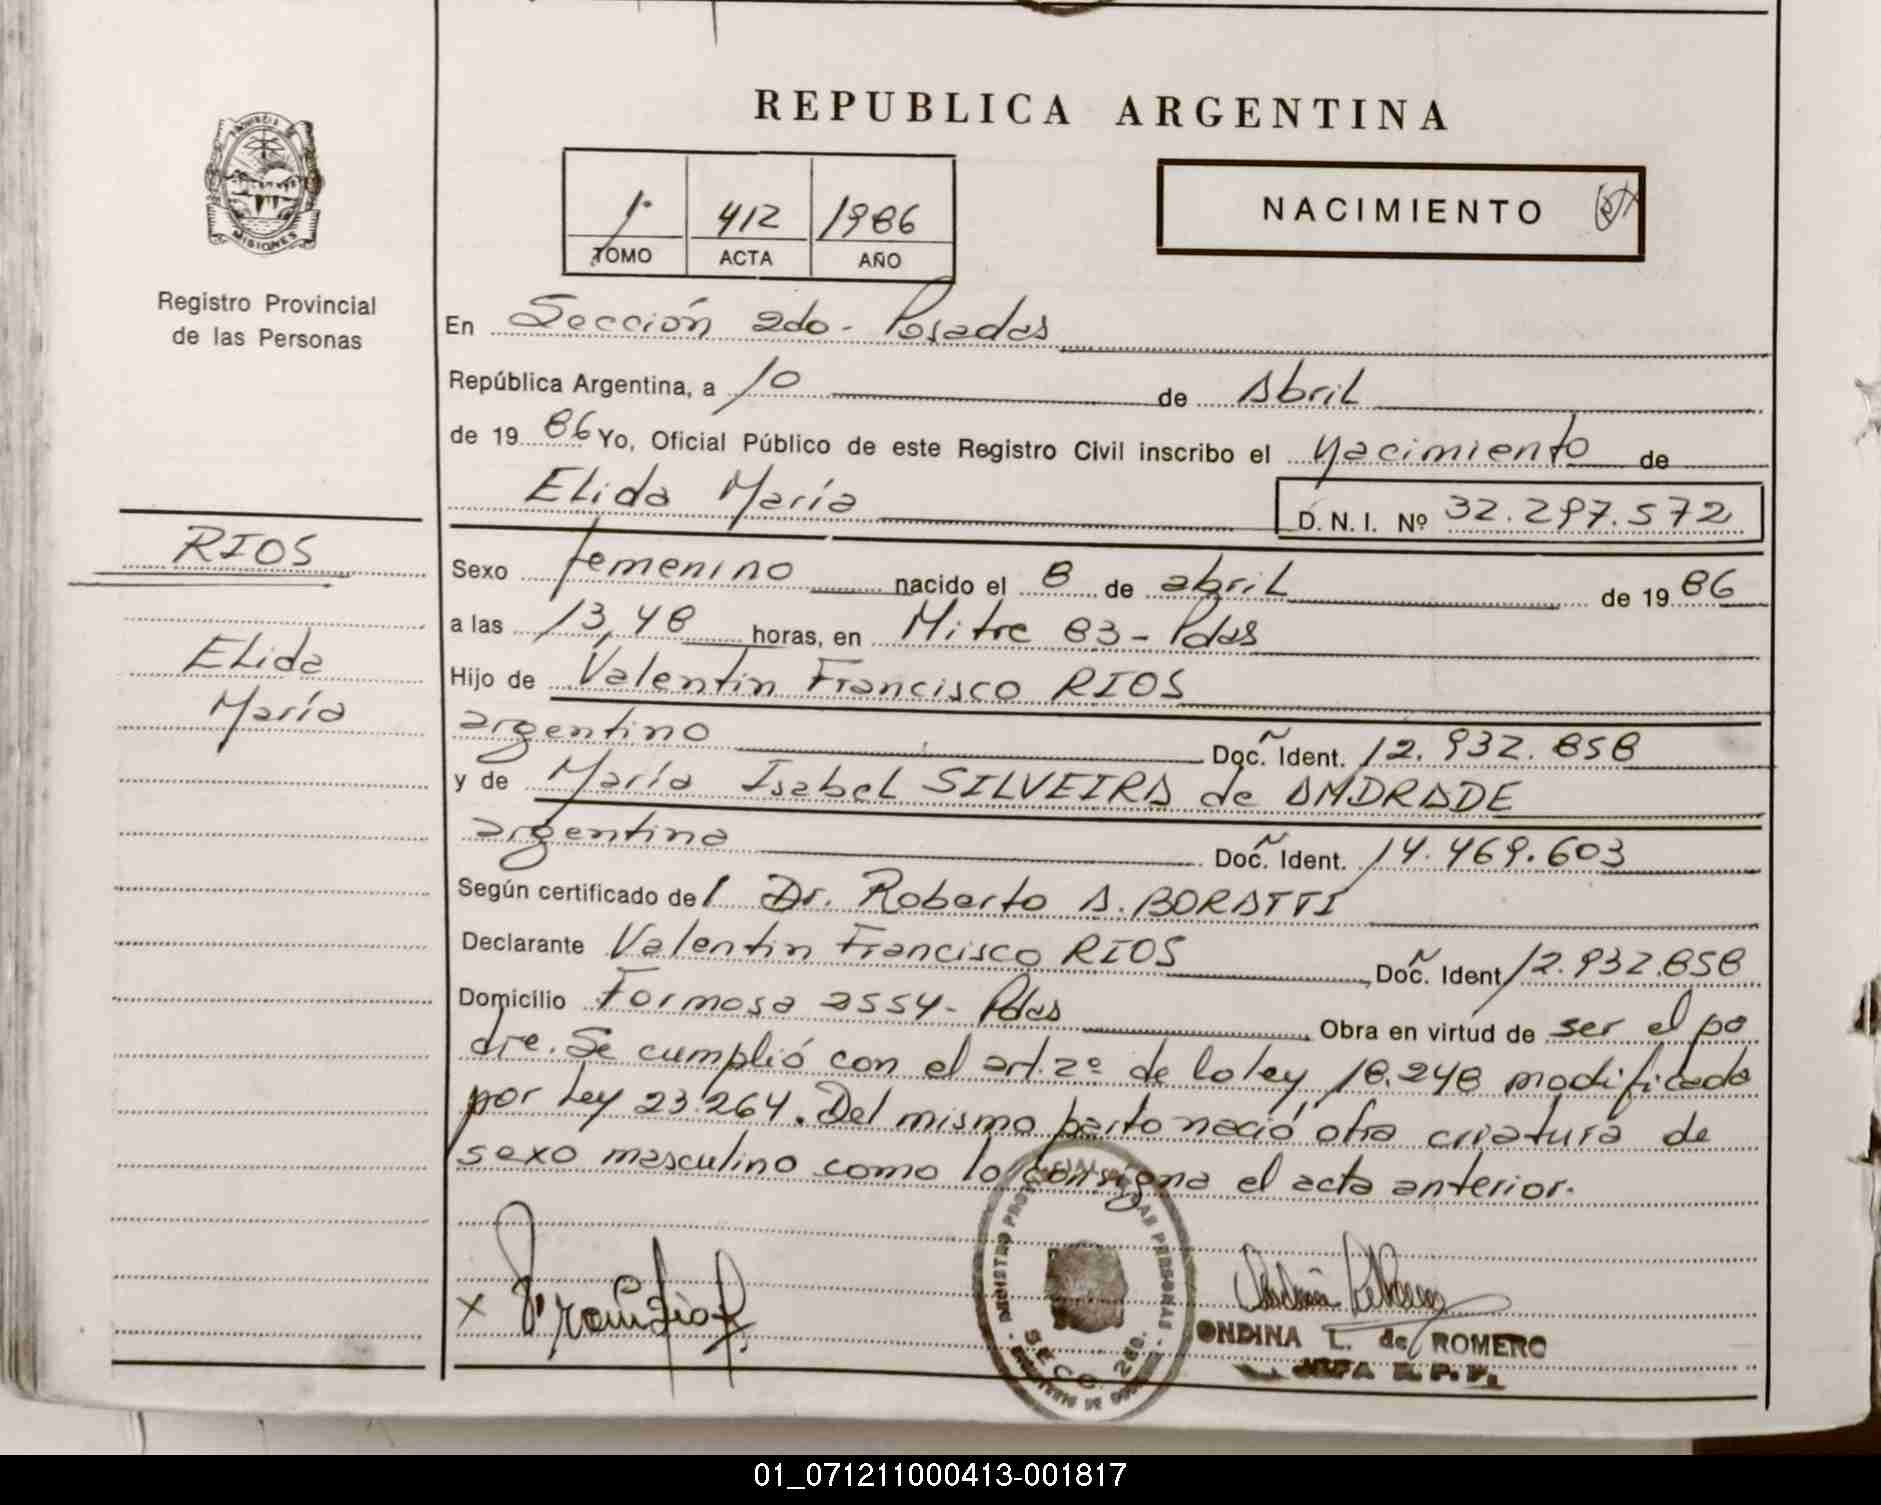 REPUBLICA ARGENTINA
PROVINCIA DE
MISIONES
Registro Provincial
de las Personas
1º 412 1986
TOMO ACTA AÑO
NACIMIENTO
En Sección 2do - Posadas
República Argentina, a 10 de Abril
de 1986 Yo, Oficial Público de este Registro Civil inscribo el Nacimiento de
Elida María D. N. I. Nº 32.297.572
RIOS
Elida
María
Sexo femenino nacido el 8 de abril de 1986
a las 13,48 horas, en Mitre 83 - Pdas
Hijo de Valentín Francisco RIOS
argentino Doc. Ident. 12.932.858
y de María Isabel SILVEIRA de ANDRADE
argentina Doc. Ident. 14.469.603
Según certificado del Dr. Roberto A. BORATTI
Declarante Valentin Francisco RIOS Doc. Ident 12.932.858
Domicilio Formosa 2554 - Pdas Obra en virtud de ser el pa
dre. Se cumplió con el art. 2º de la ley 18.248 modificada
por Ley 23.264. Del mismo parto nació otra criatura de
sexo masculino como lo consigna el acta anterior.
X
REGISTRO PROVINCIAL DE LAS PERSONAS
SECC. 2da.
ONDINA L. de ROMERO
JEFA R. P. P.
01_071211000413-001817